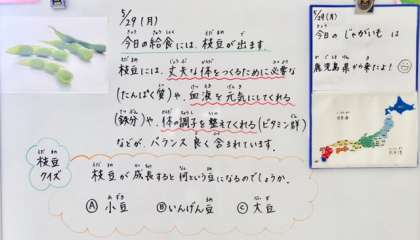 5/29(月)
今日の給食には、枝豆が出ます。
枝豆には、丈夫な体をつくるために必要な
(たんぱく質)や、血液を元気にしてくれる
(鉄分)や、体の調子を整えてくれる(ビタミン群)
などが、バランス良く含まれています。
枝豆
クイズ
枝豆が成長すると何という豆になるのでしょうか。
Ⓐ小豆 Ⓑいんげん豆 Ⓒ大豆
5/29(月)
今日のじゃがいもは
鹿児島県から来たよ!